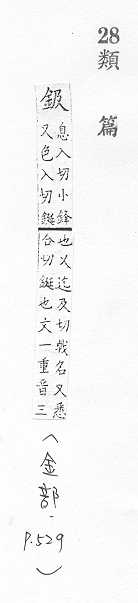 28
類篇
鈒息入切小鋒也又迄及切戟名又悉
又色入切鋋合切鋋也文一重音三
(金部-
P.529)